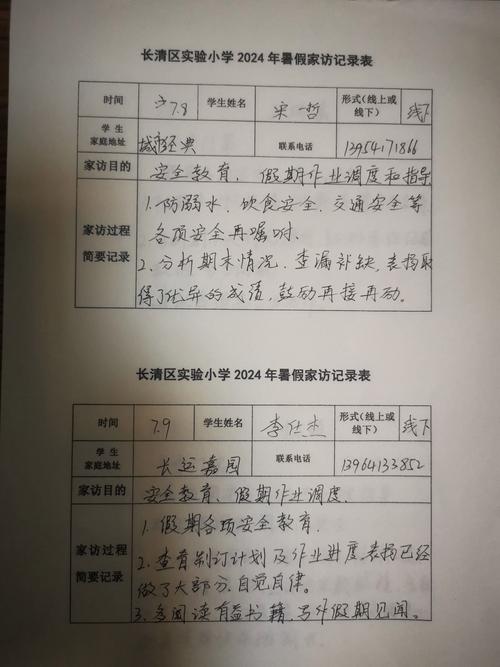 长清区实验小学 2024 年暑假家访记录表
时间 7.8 学生姓名 宋一哲 形式(线上或线下) 线下
学生家庭地址 城市经典 联系电话 13954171866
家访目的 安全教育、假期作业调度和指导
家访过程简要记录 1.防溺水、饮食安全、交通安全等
各项安全再嘱咐.
2.分析期末情况.查漏补缺.表扬取
得了优异的成绩,鼓励再接再励。
长清区实验小学 2024 年暑假家访记录表
时间 7.9 学生姓名 李仕杰 形式(线上或线下) 线下
学生家庭地址 长运嘉园 联系电话 13964133852
家访目的 安全教育、假期作业调度.
家访过程简要记录 1.假期各项安全教育.
2.查看制订计划及作业进度.表扬已经
做了大部分.自觉自律。
3.多阅读有益书籍,写外假期见闻。